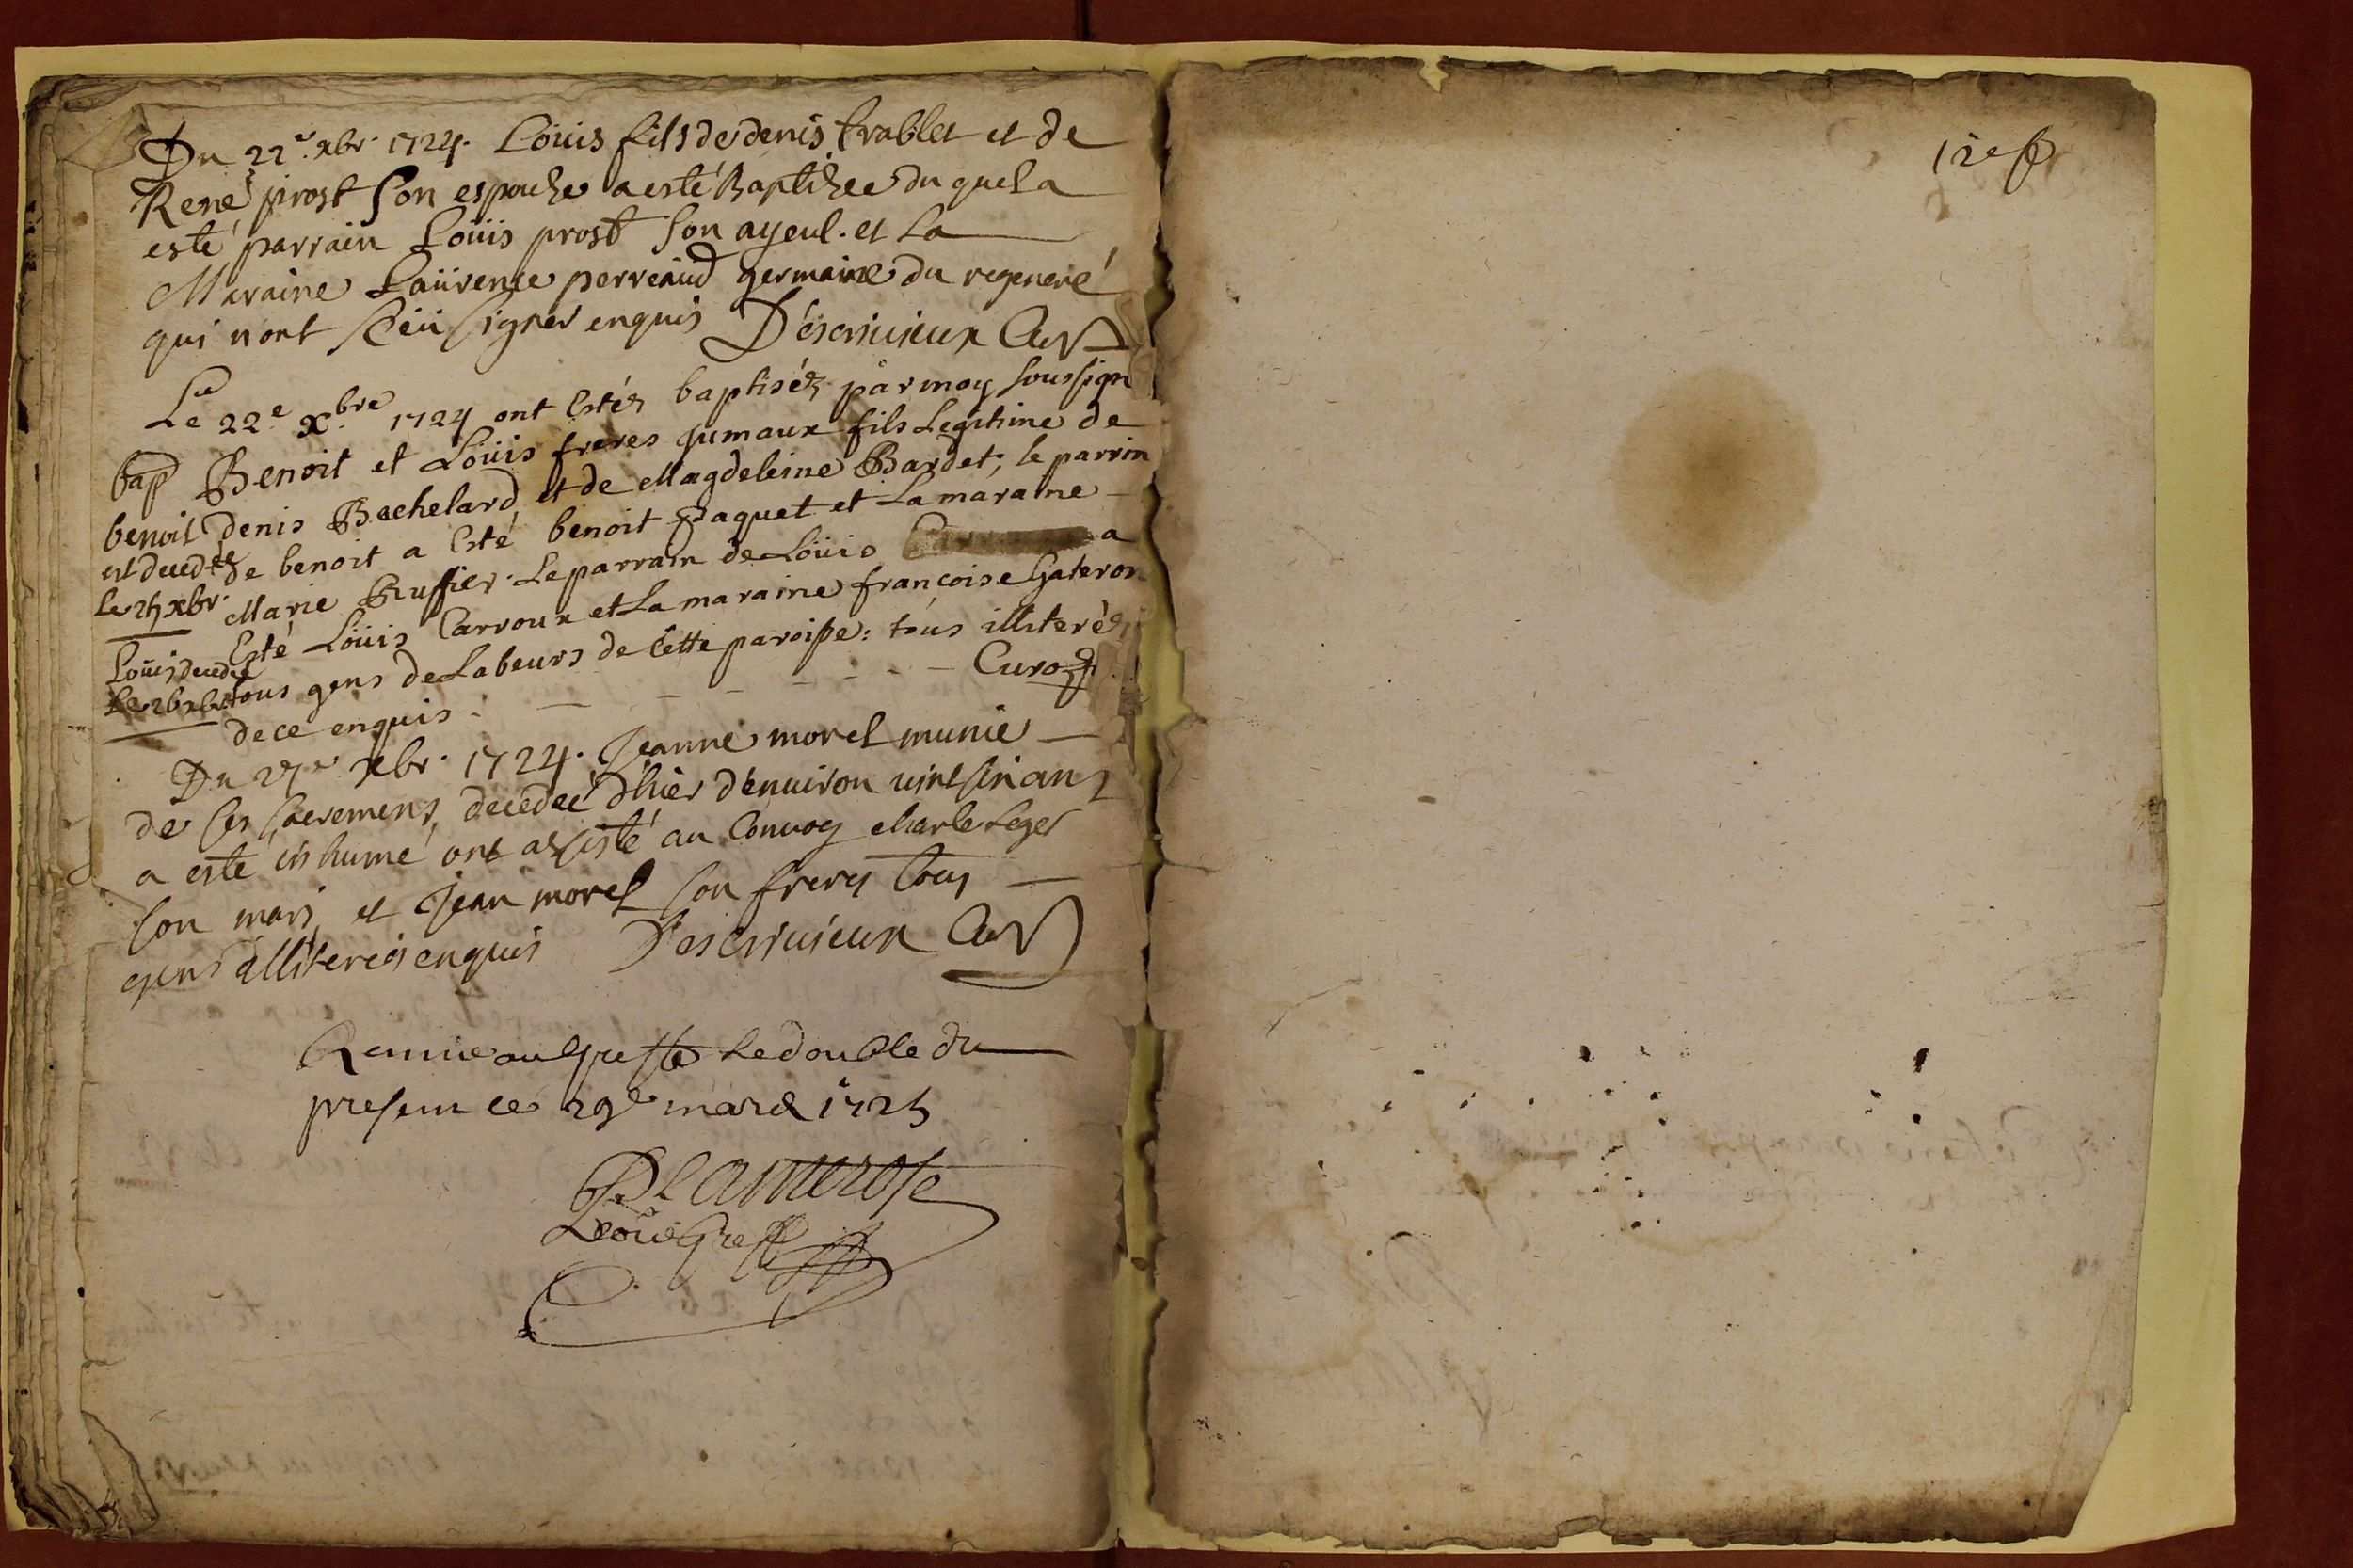 Du 22e. xbr. 1724. Loüis fils de denis trablet et de
René prost son espouze a esté Baptizee du quel a
esté parrain Loüis prost son ayeul. et La
Maraine Laürence perreaud germaine du regeneré
qui n'ont sceü signer enquis Descriuieux Curé
Le 22e xbre 1724 ont Estéz baptiséz par moy soussign
bap Benoit et Loüis freres jumaux fils Legitime de
benoit Denis Bachelard et de Magdeleine Bardet; le parrin
est decede de benoit a Esté benoit paquet et La maraine
le 25 xbr. Marie Ruffier. Le parrain de Loüis a
Esté Loüis Carroux et La maraine françoise Gateron
Loüis decedé tous gens de Labeurs de Cette paroisse: tous illiteréz
le 26 xbr. de ce enquis. Curoz
Du 27e xbr. 1724. Jeanne morel munie
de ses sacremens, decedeé d'hier d'enuiron uint six ans
a esté inhumé ont assisté au Conuoy charle Leger
son mari, et Jean morel son frere, tous
gens illiteréz enquis Descriuieux Curé
Remis au greffe Le double du
present ce 29e mars 1725
Delamerose
Greff
12e f